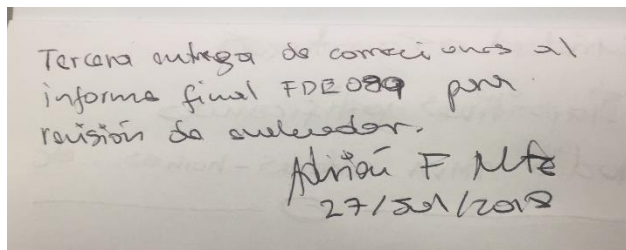 Tercera entrega de correciones al
informe final FDE089 para
revisión de evaluador.
Adrián F Mtz
27/Jul/2018